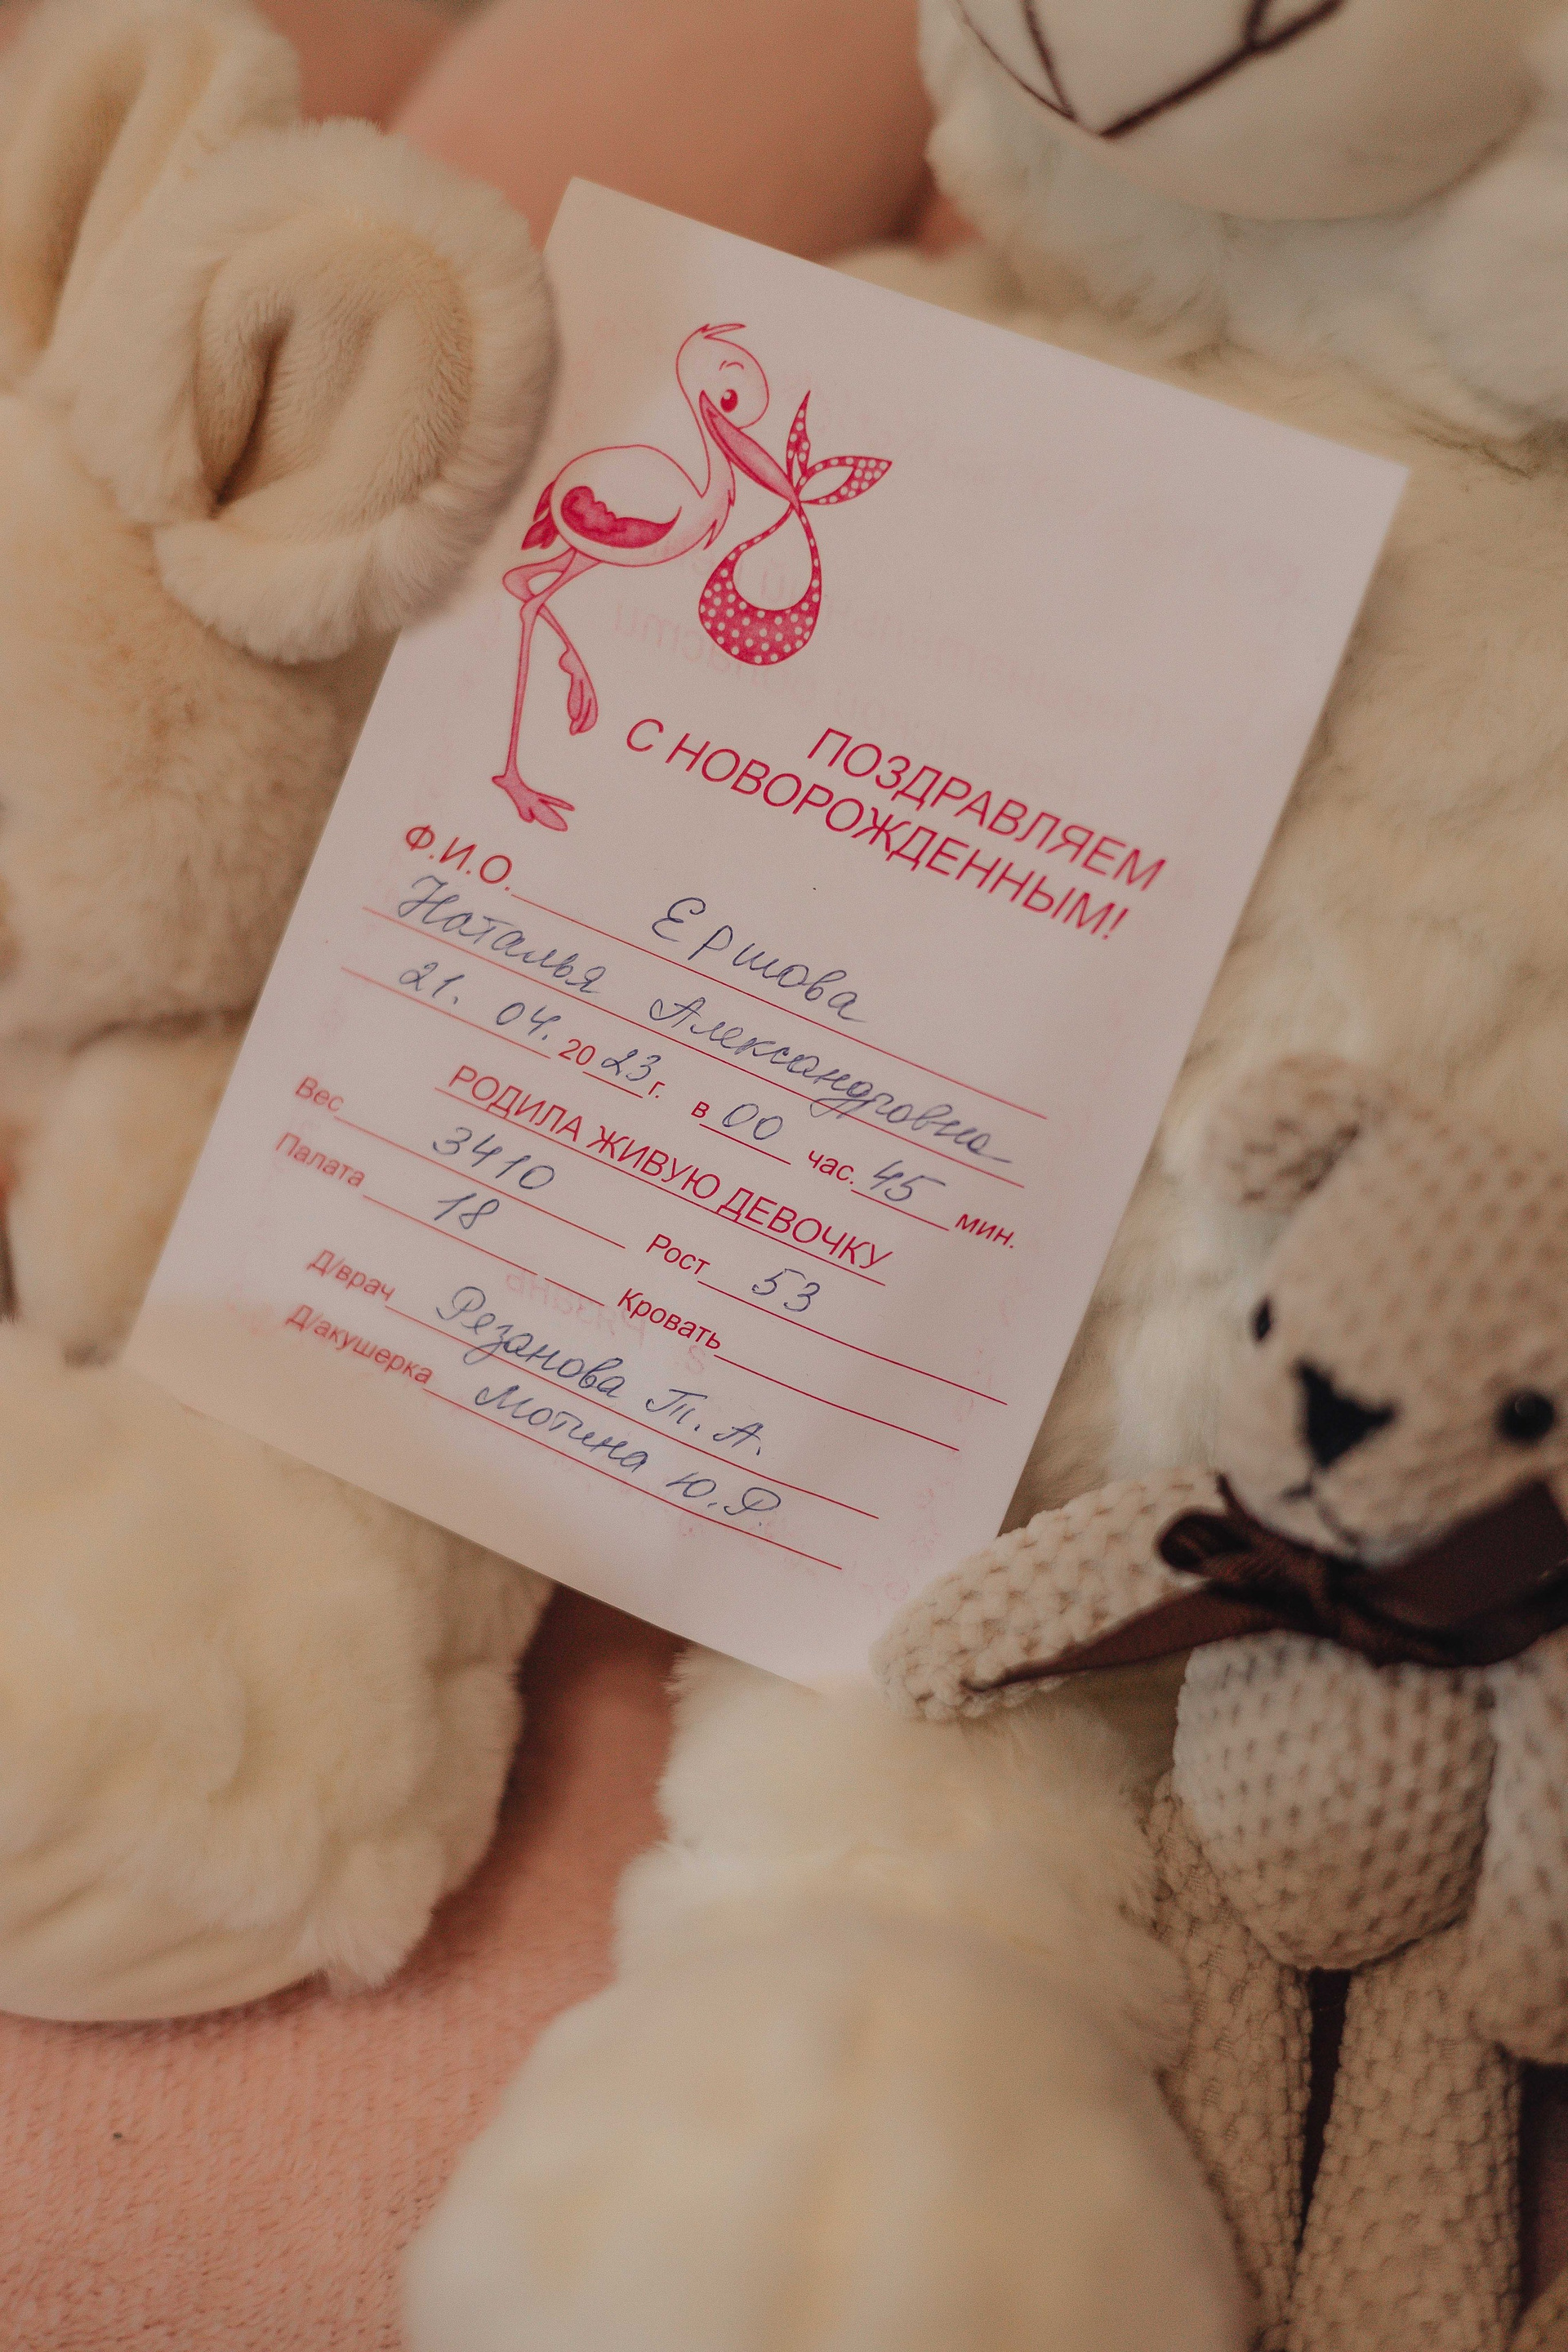 ПОЗДРАВЛЯЕМ
С НОВОРОЖДЕННЫМ!
Ф.И.О. Ершова
Наталья Александровна
21. 04. 2023 г. в 00 час. 45 мин.
РОДИЛА ЖИВУЮ ДЕВОЧКУ
Вес 3410 Рост 53
Палата 18 Кровать
Д/врач Резанова Т. А.
Д/акушерка Мотина Ю. Р.